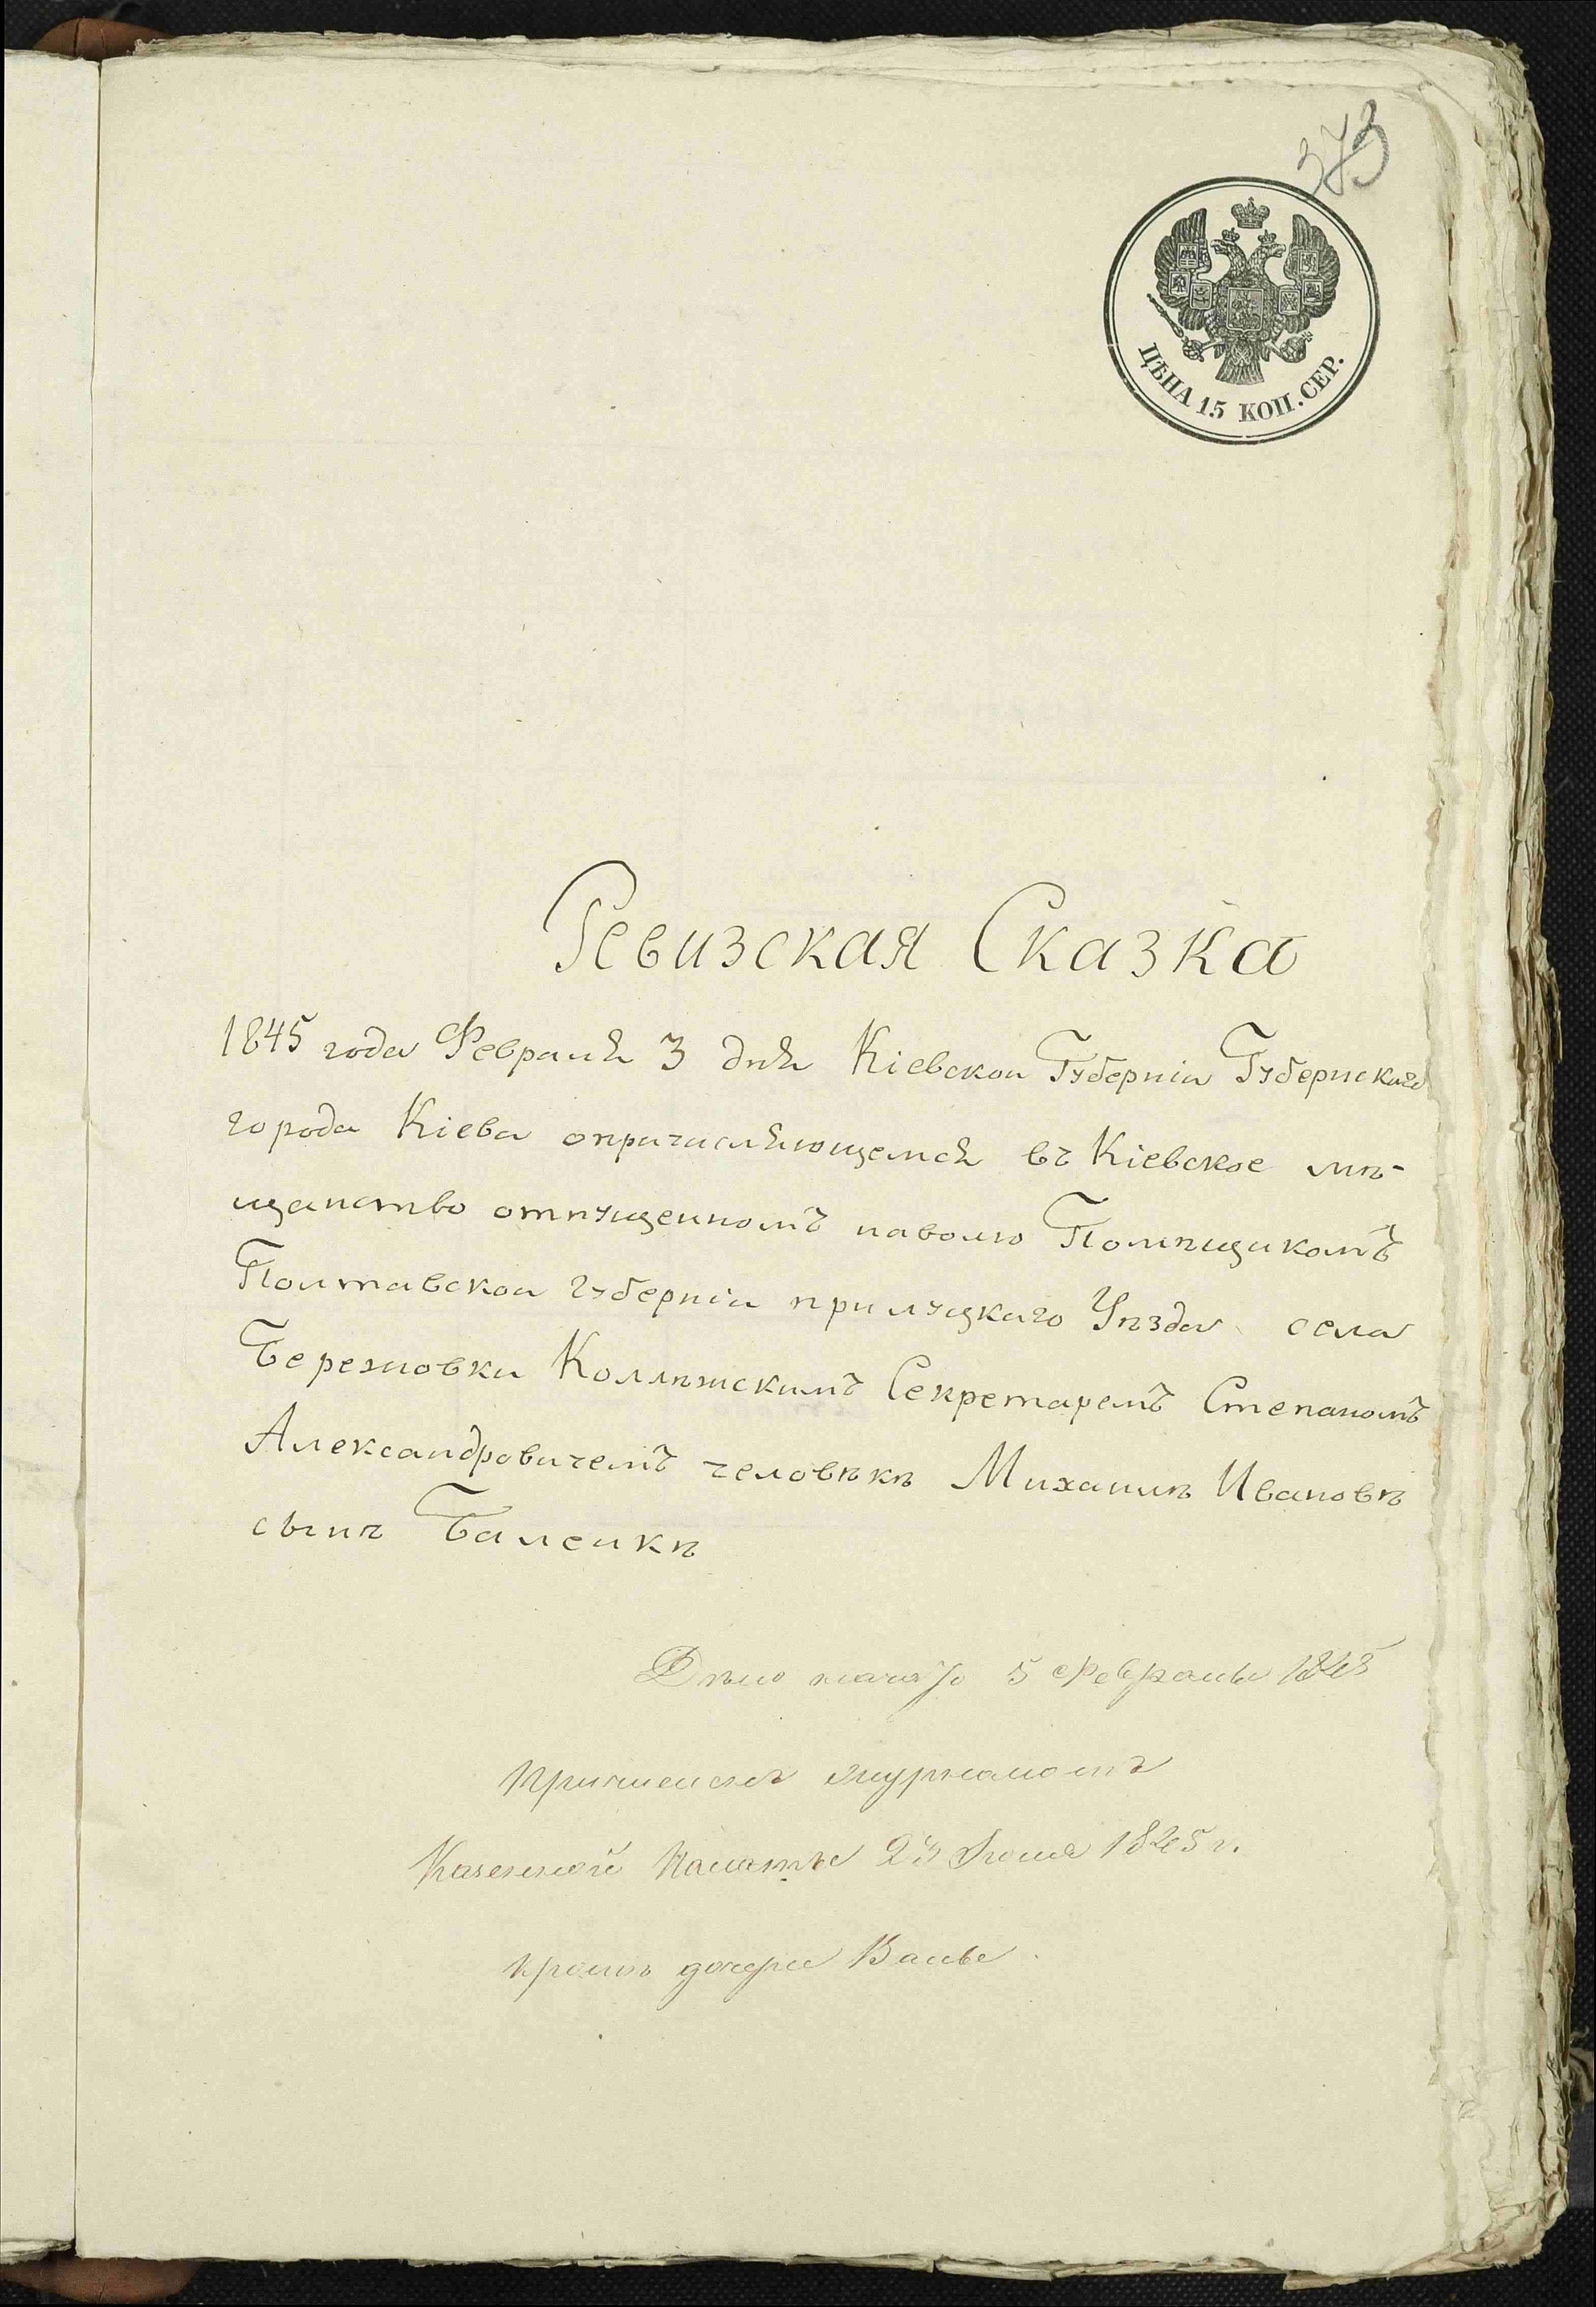 373
ЦѢНА 15 КОП. СЕР.
Ревизская Сказка
1845 года Февраля 3 дня Кіевской Губерніи Губернскаго
города Кіева опричисляющемся въ Кіевское мѣ-
щанство отпущенномъ наволю Помѣщикомъ
Полтавской губерніи прилуцкаго Уѣзда села
Березовки Коллѣжскимъ Секретаремъ Степаномъ
Александровичемъ человѣкѣ Михаилѣ Ивановѣ
сынѣ Балейкѣ
Дѣло 5 Февраля 1845
Причисленъ журналомъ
Казенной Палаты 23 Іюня 1845 г.
кромѣ дочери